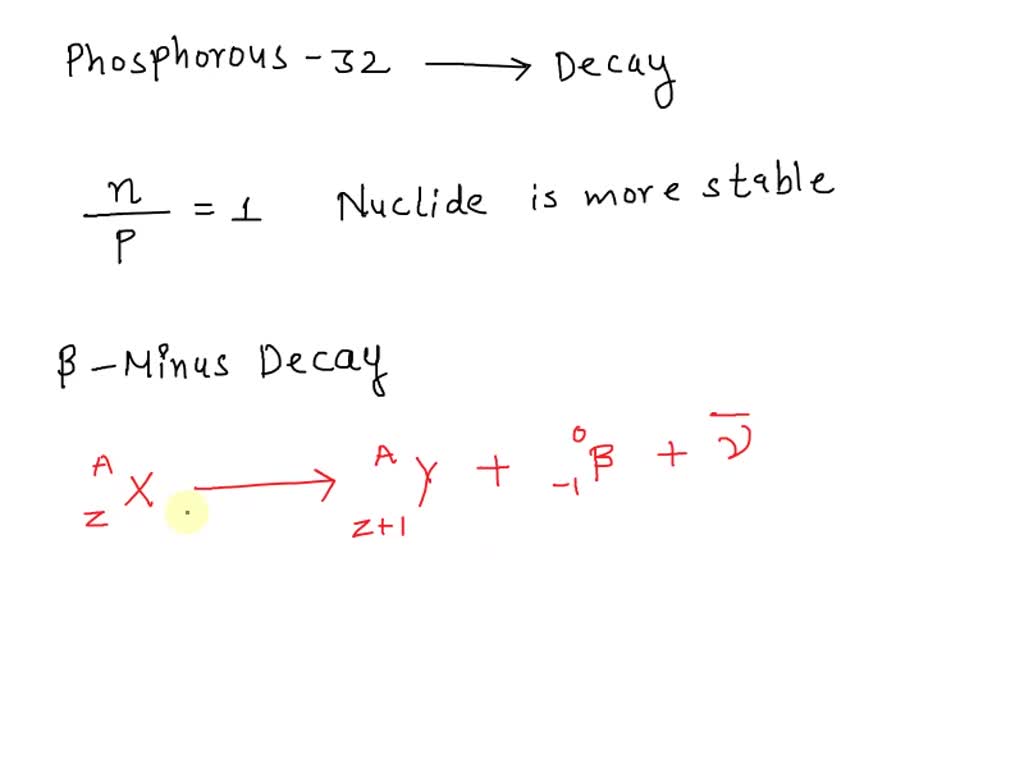 Phosphorous - 32 ⟶ Decay
n/p = 1 Nuclide is more stable
β - Minus Decay
ᴬ_Z X ⟶ ᴬ_{Z+1} Y + ⁰_{-1} β + ν̅